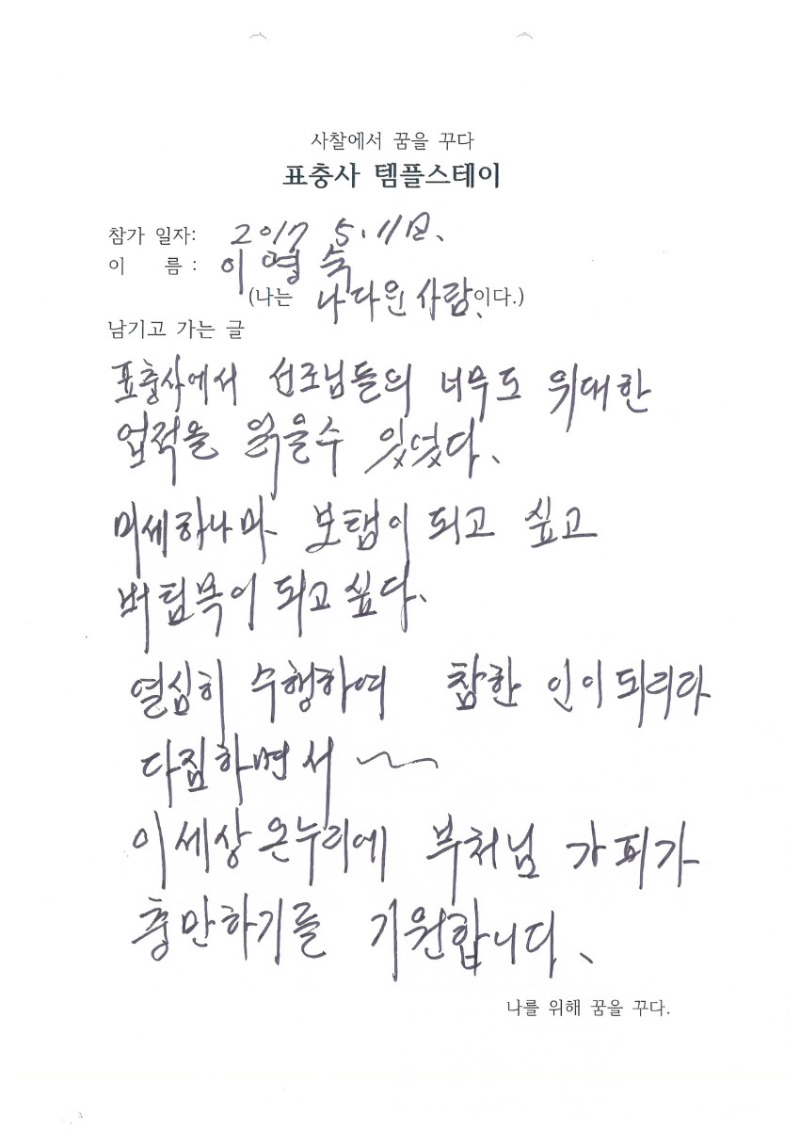 사찰에서 꿈을 꾸다
표충사 템플스테이
참가 일자: 2017 5. 11日.
이 름 : 이영숙
(나는 나다운 사람이다.)
남기고 가는 글
표충사에서 선조님들의 너무도 위대한
업적을 읽을수 있었다.
미세하나마 보탬이 되고 싶고
버팀목이 되고싶다.
열심히 수행하여 참한 인이되리라
다짐하면서 ~
이세상온누리에 부처님 가피가
충만하기를 기원합니다.
나를 위해 꿈을 꾸다.